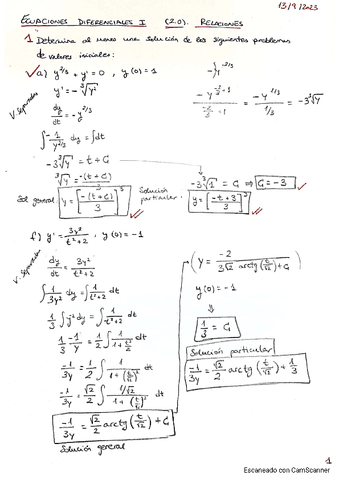 13/9/2023
ECUACIONES DIFERENCIALES I (2.0). RELACIONES
1 Determine al menos una solución de los siguientes problemas
de valores iniciales:
a) y^{2/3} + y' = 0 , y(0) = 1
V. separadas
y' = -∛y²
dy/dt = -y^{2/3}
∫ -1/y^{2/3} dy = ∫dt
-3∛y = t + C
∛y = -(t+C)/3
Sol general: y = [-(t+C)/3]³
-y^{-2/3+1}/(-2/3+1) = -y^{1/3}/(1/3) = -3∛y
-3∛1 = C ⇒ C = -3
Solución
particular:
y = [-t+3/3]³
f) y' = 3y²/(t²+2) , y(0) = -1
V. separadas
dy/dt = 3y²/(t²+2)
∫ 1/3y² dy = ∫ 1/(t²+2) dt
1/3 ∫ y^{-2} dy = ∫ 1/(t²+2) dt
1/3 · -1/y = 1/2 ∫ 1/(1+t²/2) dt
-1/3y = 1/2 ∫ 1/(1+(t/√2)²) dt
-1/3y = √2/2 ∫ (1/√2)/(1+(t/√2)²) dt
-1/3y = √2/2 arctg(t/√2) + C
Solución general
y = -2/(3√2 arctg(t/√2)+C)
y(0) = -1
1/3 = C
Solución particular
-1/3y = √2/2 arctg(t/√2) + 1/3
1
Escaneado con CamScanner